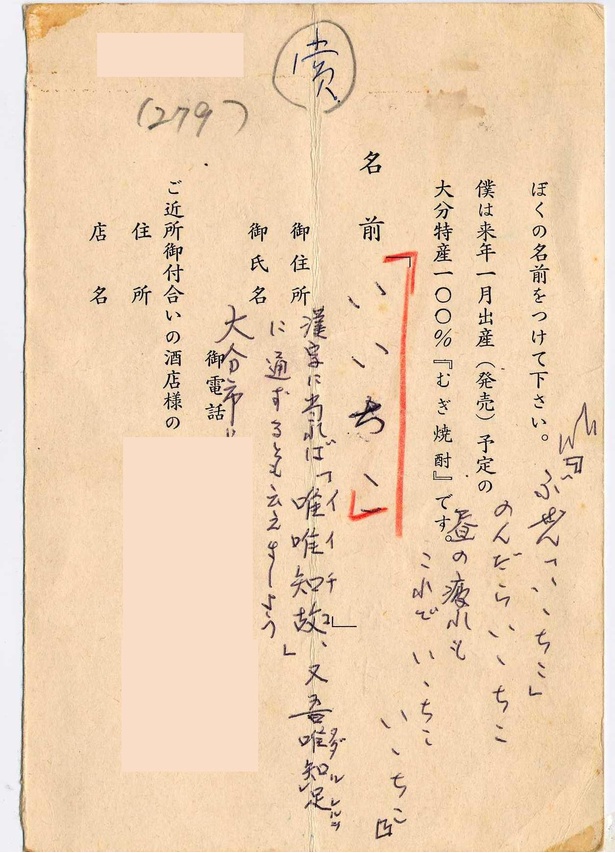 賞
(279)
ぼくの名前をつけて下さい。
僕は来年一月出産（発売）予定の
大分特産一〇〇％『むぎ焼酎』です。
名前
「いいちこ」
御住所
御氏名
御電話
大分市
ご近所御付合いの酒店様の
住所
店名
ぶぜん「いゝちこ」
のんだらいゝちこ
昼の疲れも
これでいゝちこ
いゝちこ
漢字に当れば「唯唯知故」、又吾唯知足
イイチコ
に通ずるとも云えましょう」